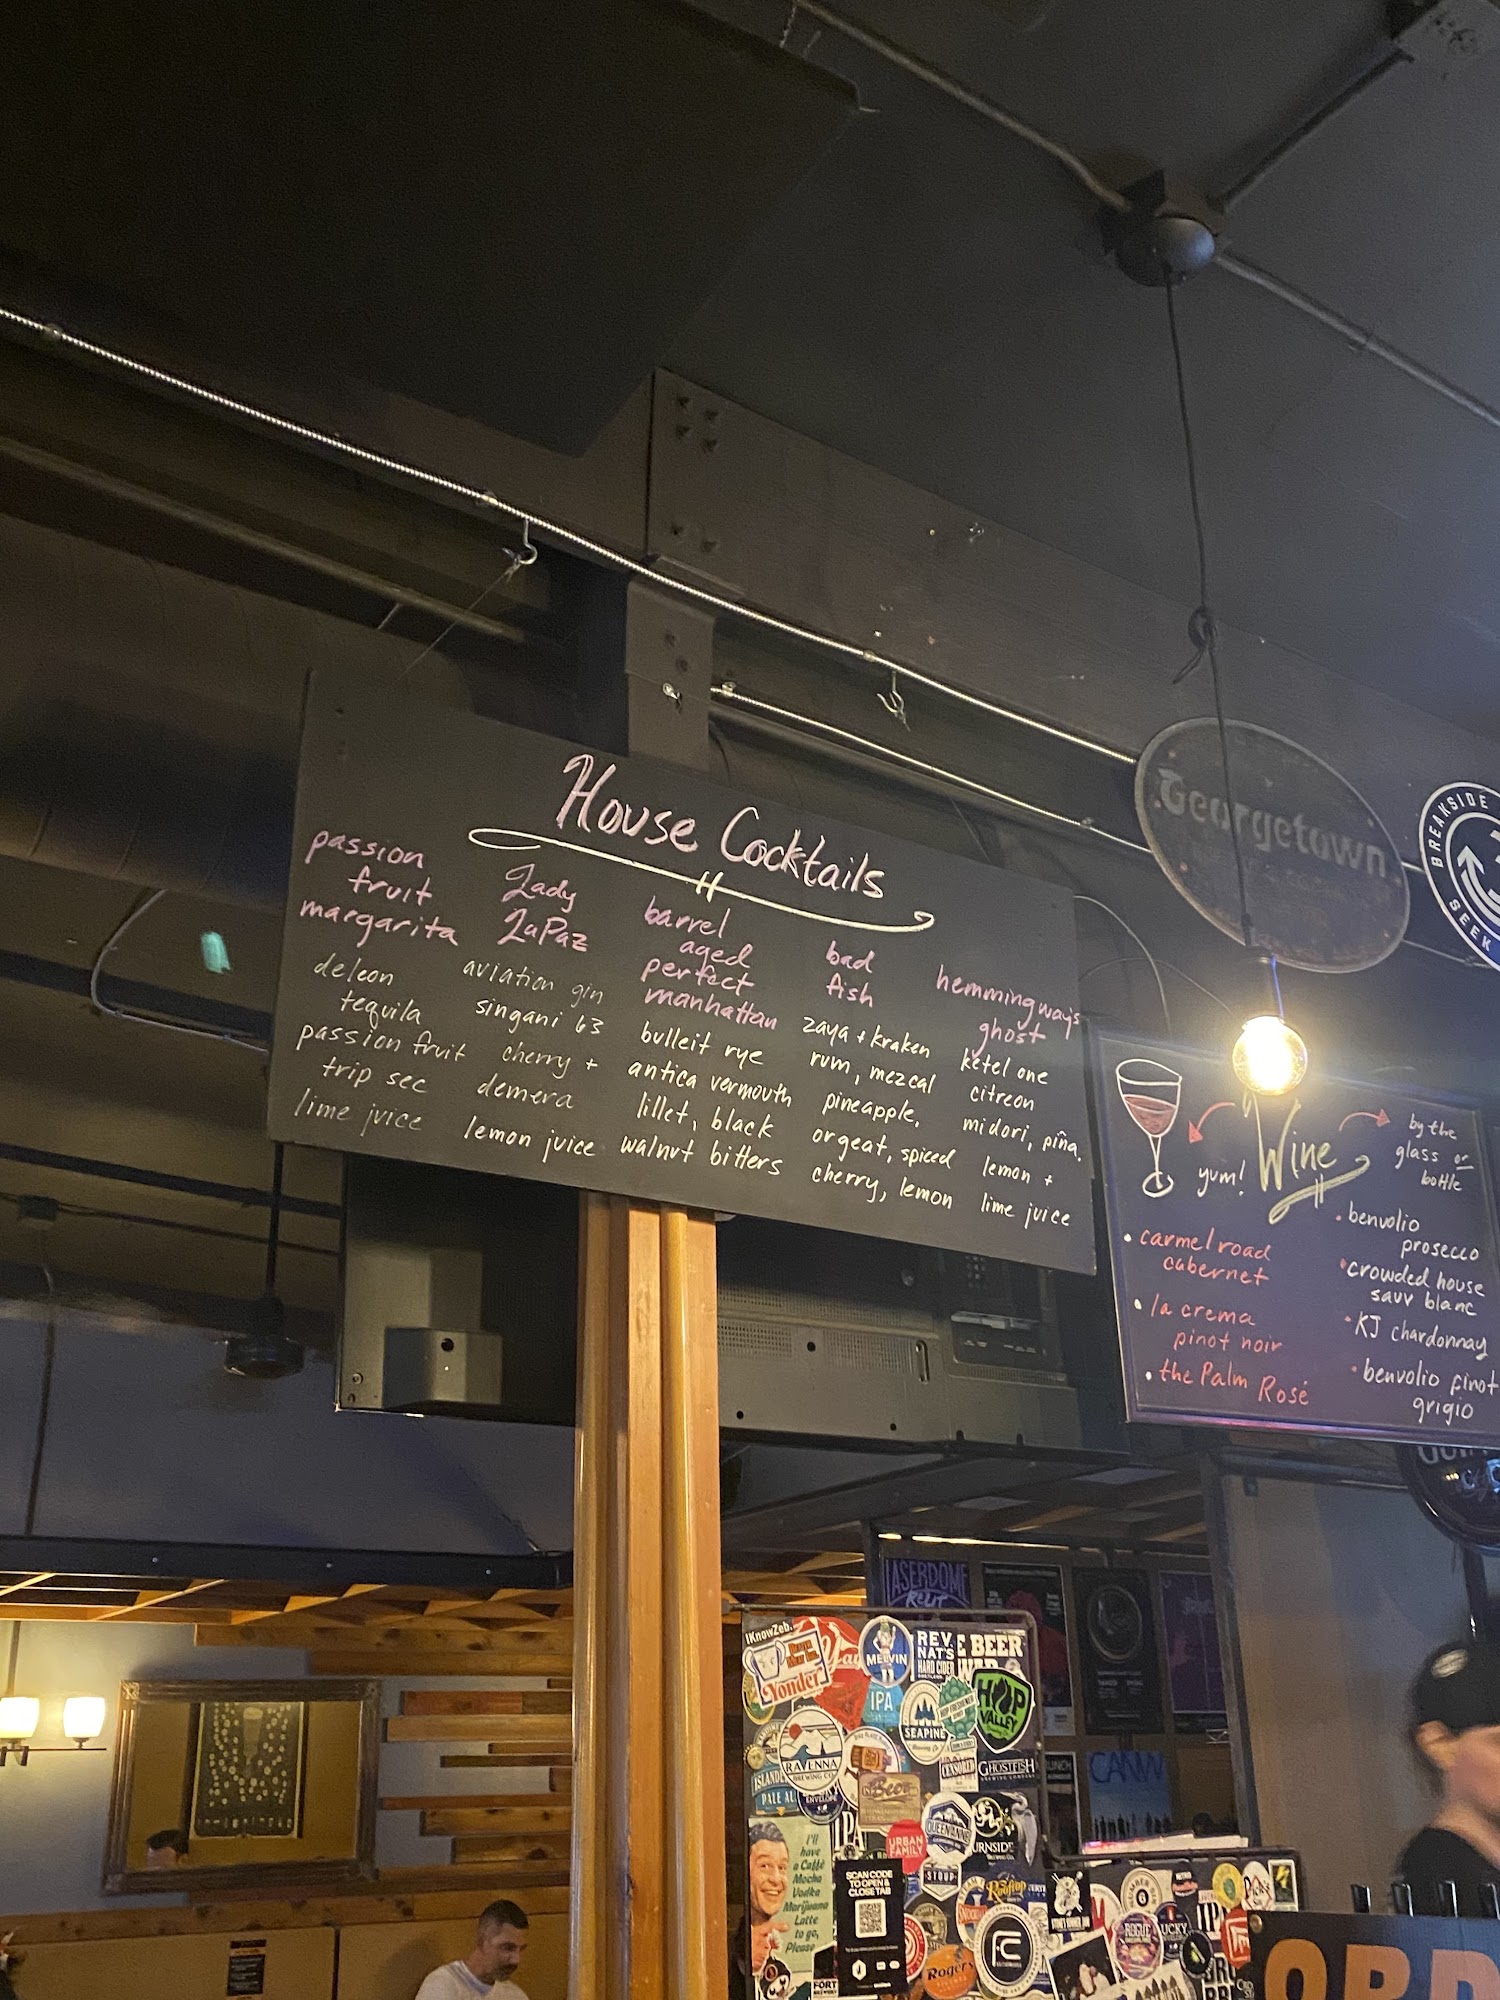 House Cocktails
passion
fruit
margarita
deleon
tequila
passion fruit
trip sec
lime juice
Lady
LaPaz
aviation gin
singani 63
cherry +
demera
lemon juice
barrel
aged
perfect
manhattan
bulleit rye
antica vermouth
lillet, black
walnut bitters
bad
fish
zaya + kraken
rum, mezcal
pineapple,
orgeat, spiced
cherry, lemon
hemmingway's
ghost
ketel one
citreon
midori, piña.
lemon +
lime juice
Georgetown
BREAKSIDE
SEEK
yum!
Wine
by the
glass or
bottle
• carmel road
cabernet
• la crema
pinot noir
• the Palm Rosé
• benvolio
prosecco
• crowded house
sauv blanc
• KJ chardonnay
• benvolio pinot
grigio
LASERDOME
RELIT
IKnowZeb.
Yonder
MELVIN
IPA
REV.
NAT'S
HARD CIDER
E BEER
HOP
VALLEY
SEAPINE
RAVENNA
BREWING CO
CENSORED
GHOSTFISH
ISLAND
PALE AL
ENVELOPE
Beer
IPA
URBAN
FAMILY
QUEEN ANNE
URNSIDE
STOUP
I'll
have
a Caffé
Mocha
Vodka
Marijuana
Latte
to go,
Please
SCAN CODE
TO OPEN &
CLOSE TAB
Rooftop
FC
Rogers
FORT
ROGUE
LUCKY
IP
ORD